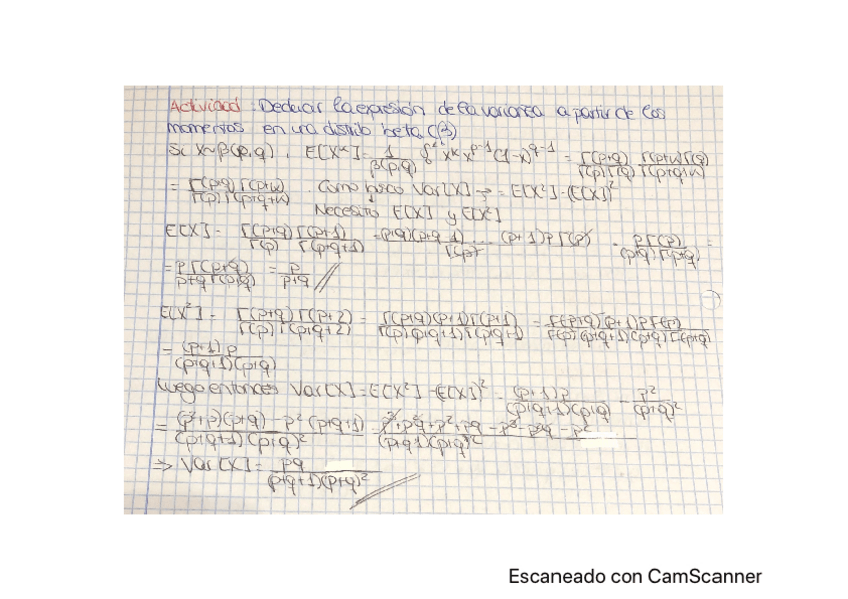 Actividad: Deducir la expresión de la varianza a partir de los
momentos en una distrib beta (β)
Si X~β(p,q), E[X^k] = 1/β(p,q) ∫ x^k x^{p-1} (1-x)^{q-1} = Γ(p+q)/Γ(p)Γ(q) Γ(p+k)Γ(q)/Γ(p+q+k)
= Γ(p+q)Γ(p+k)/Γ(p)Γ(p+q+k) . Como busco Var[X] → = E[X²]-(E[X])²
Necesito E[X] y E[X²]
E[X] = Γ(p+q)Γ(p+1)/Γ(p)Γ(p+q+1) = (p+q)(p+q-1) ... (p+1)pΓ(p)/Γ(p) = pΓ(p)/(p+q)Γ(p+q) =
= pΓ(p+q)/p+q Γ(p+q) = p/p+q //
E[X²] = Γ(p+q)Γ(p+2)/Γ(p)Γ(p+q+2) = Γ(p+q)(p+1)Γ(p+1)/Γ(p)(p+q+1)Γ(p+q+1) = Γ(p+q)(p+1)pΓ(p)/Γ(p)(p+q+1)(p+q)Γ(p+q)
= (p+1)p/(p+q+1)(p+q)
Luego entonces Var[X] = E[X²] - (E[X])² = (p+1)p/(p+q+1)(p+q) - p²/(p+q)²
= (p²+p)(p+q) - p²(p+q+1)/(p+q+1)(p+q)² = p³+p²q+p²+pq-p³-p²q-p²/(p+q+1)(p+q)²
⇒ Var[X] = pq/(p+q+1)(p+q)² //
Escaneado con CamScanner